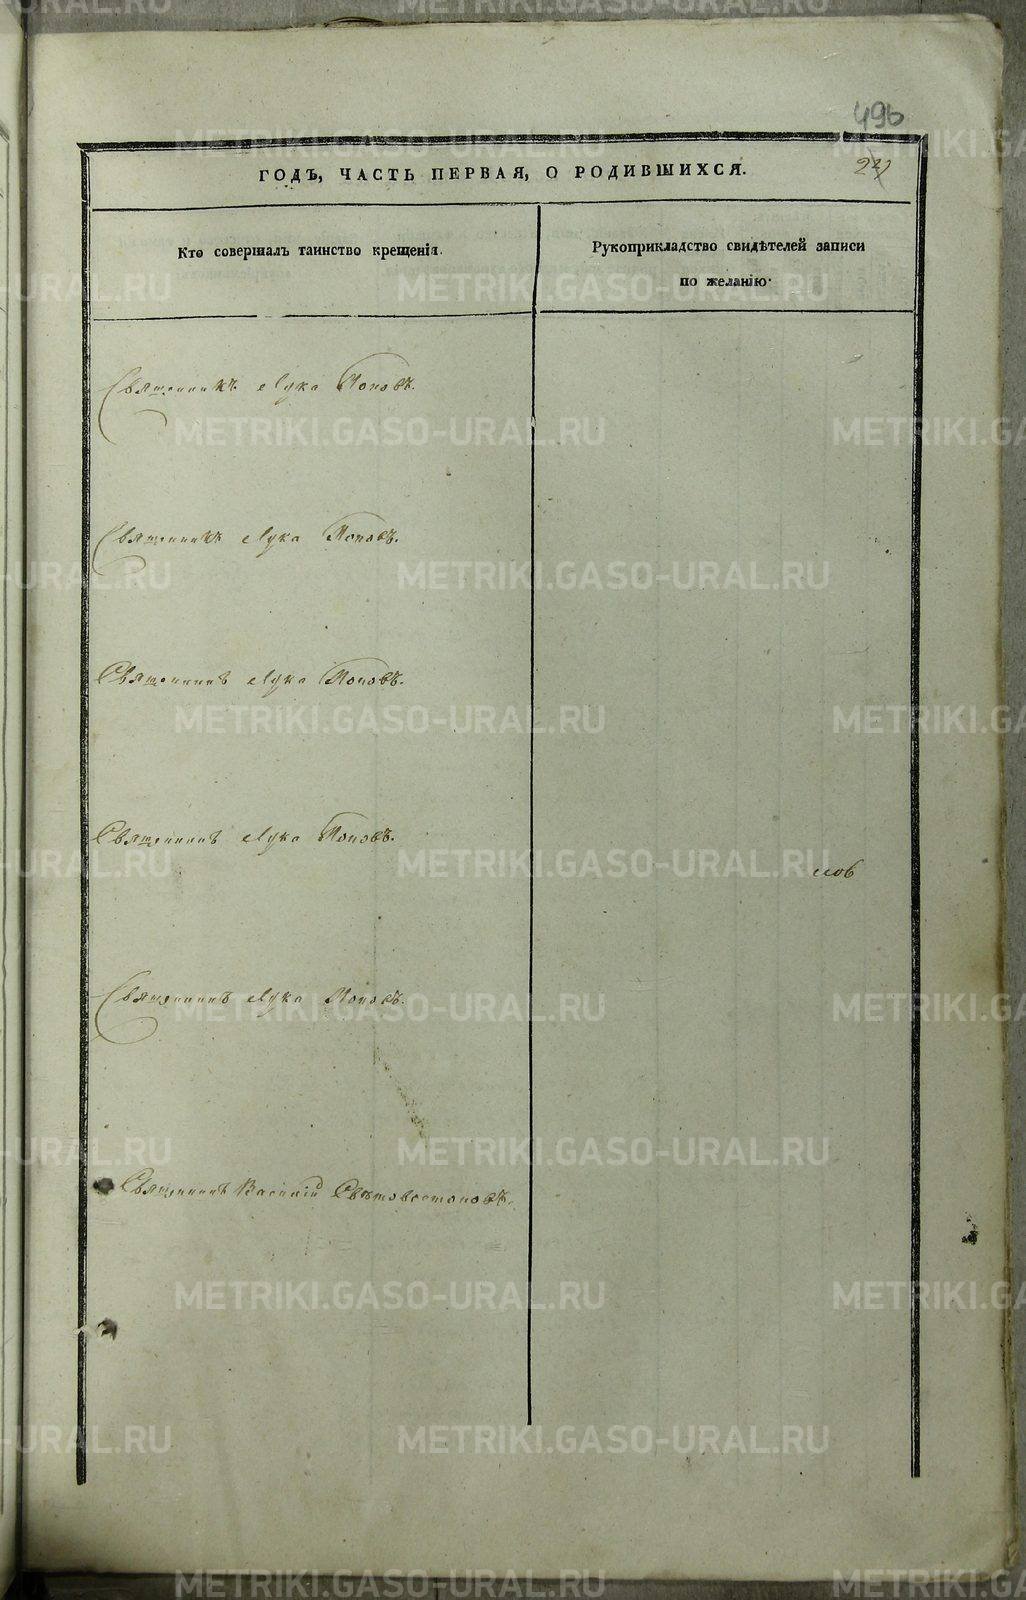 496
ГОДЪ, ЧАСТЬ ПЕРВАЯ, О РОДИВШИХСЯ.
Кто совершалъ таинство крещенія.
Рукоприкладство свидѣтелей записи
по желанію.
Священникъ Лука Поповъ.
Священникъ Лука Поповъ.
Священникъ Лука Поповъ.
Священникъ Лука Поповъ.
Священникъ Лука Поповъ.
Священникъ Василій
METRIKI.GASO-URAL.RU